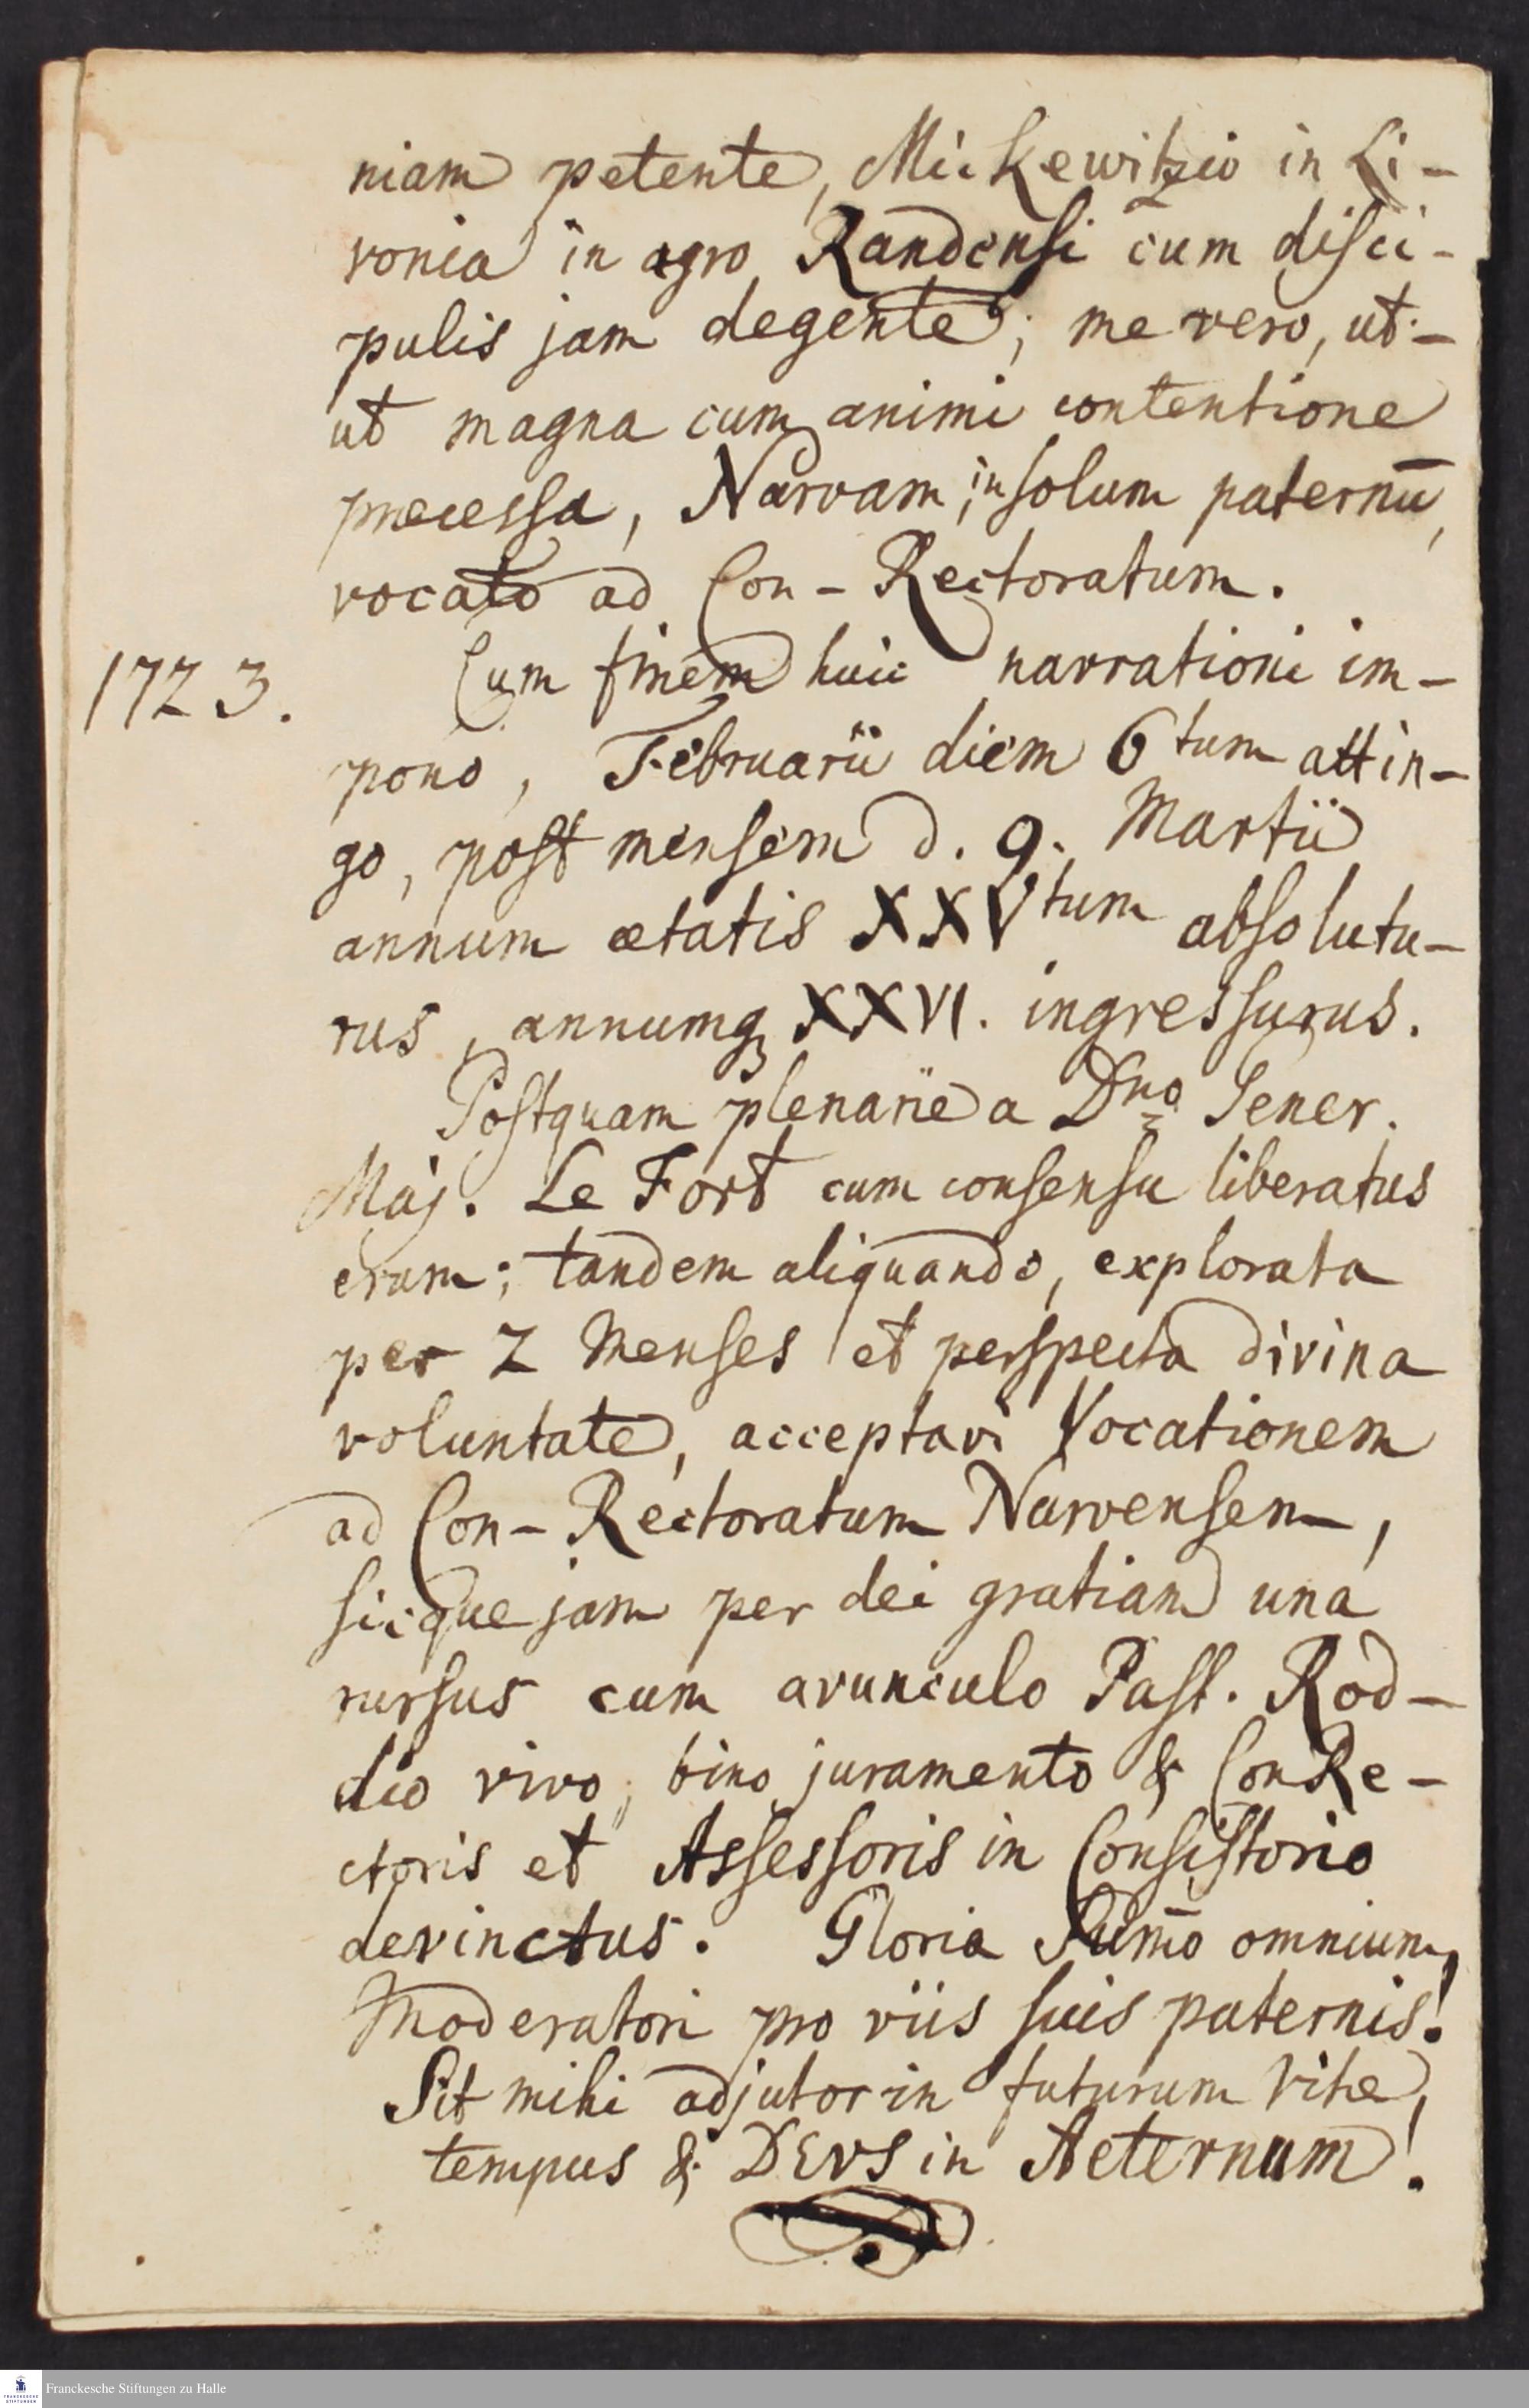 niam petente, Mickewitzio in Li-
vonia in agro Randensi cum disci-
pulis jam degente; me vero, ut-
ut magna cum animi contentione
precessa, Narvam, in solum paternū,
vocato ad Con-Rectoratum.
1723.
Cum finem huic narrationi im-
pono, Februarii diem 6tum attin-
go, post mensem d. 9. Martii
annum ætatis XXVtum absolutu-
rus, annumq XXVI. ingressurus.
Postquam plenarie a Dno Gener.
Maj. Le Fort cum consensu liberatus
eram; tandem aliquando, explorata
per 2 Menses et perspecta divina
voluntate, acceptavi Vocationem
ad Con-Rectoratum Narvensem,
sicque jam per dei gratiam una
rursus cum avunculo Past. Rod-
dio vivo, bino juramento & ConRe-
ctoris et Assessoris in Consistorio
devinctus. Gloria Sum̄o omnium,
Moderatori pro viis suis paternis!
Sit mihi adjutor in futurum vitæ,
tempus & DEVS in Aeternum!
Franckesche Stiftungen zu Halle